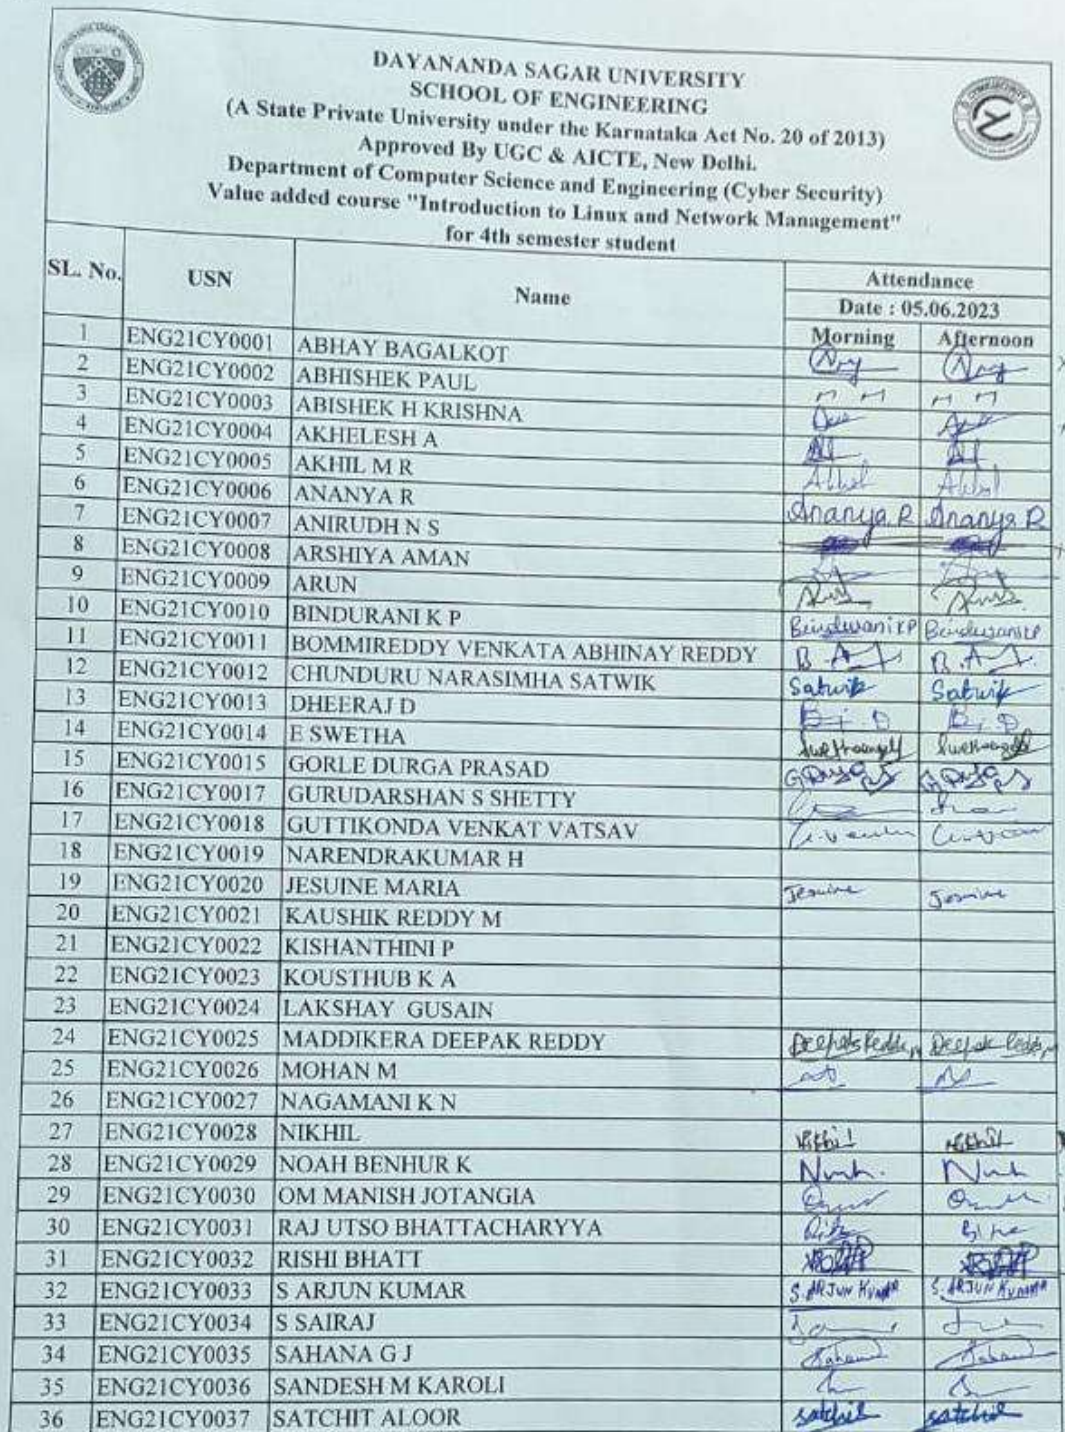 DAYANANDA SAGAR UNIVERSITY
SCHOOL OF ENGINEERING
(A State Private University under the Karnataka Act No. 20 of 2013)
Approved By UGC & AICTE, New Delhi.
Department of Computer Science and Engineering (Cyber Security)
Value added course "Introduction to Linux and Network Management"
for 4th semester student
SL. No. USN Name Attendance
Date : 05.06.2023
Morning Afternoon
1 ENG21CY0001 ABHAY BAGALKOT
2 ENG21CY0002 ABHISHEK PAUL
3 ENG21CY0003 ABISHEK H KRISHNA
4 ENG21CY0004 AKHELESH A
5 ENG21CY0005 AKHIL M R
6 ENG21CY0006 ANANYA R Ananya R Ananya R
7 ENG21CY0007 ANIRUDH N S
8 ENG21CY0008 ARSHIYA AMAN
9 ENG21CY0009 ARUN
10 ENG21CY0010 BINDURANI K P Bindurani KP Bindurani KP
11 ENG21CY0011 BOMMIREDDY VENKATA ABHINAY REDDY
12 ENG21CY0012 CHUNDURU NARASIMHA SATWIK Satwik Satwik
13 ENG21CY0013 DHEERAJ D
14 ENG21CY0014 E SWETHA
15 ENG21CY0015 GORLE DURGA PRASAD
16 ENG21CY0017 GURUDARSHAN S SHETTY
17 ENG21CY0018 GUTTIKONDA VENKAT VATSAV
18 ENG21CY0019 NARENDRAKUMAR H
19 ENG21CY0020 JESUINE MARIA Jesuine Jesuine
20 ENG21CY0021 KAUSHIK REDDY M
21 ENG21CY0022 KISHANTHINI P
22 ENG21CY0023 KOUSTHUB K A
23 ENG21CY0024 LAKSHAY GUSAIN
24 ENG21CY0025 MADDIKERA DEEPAK REDDY Deepak Reddy Deepak Reddy
25 ENG21CY0026 MOHAN M
26 ENG21CY0027 NAGAMANI K N
27 ENG21CY0028 NIKHIL Nikhil Nikhil
28 ENG21CY0029 NOAH BENHUR K
29 ENG21CY0030 OM MANISH JOTANGIA
30 ENG21CY0031 RAJ UTSO BHATTACHARYYA
31 ENG21CY0032 RISHI BHATT
32 ENG21CY0033 S ARJUN KUMAR S. ARJUN KUMAR S. ARJUN KUMAR
33 ENG21CY0034 S SAIRAJ
34 ENG21CY0035 SAHANA G J
35 ENG21CY0036 SANDESH M KAROLI
36 ENG21CY0037 SATCHIT ALOOR Satchit Satchit